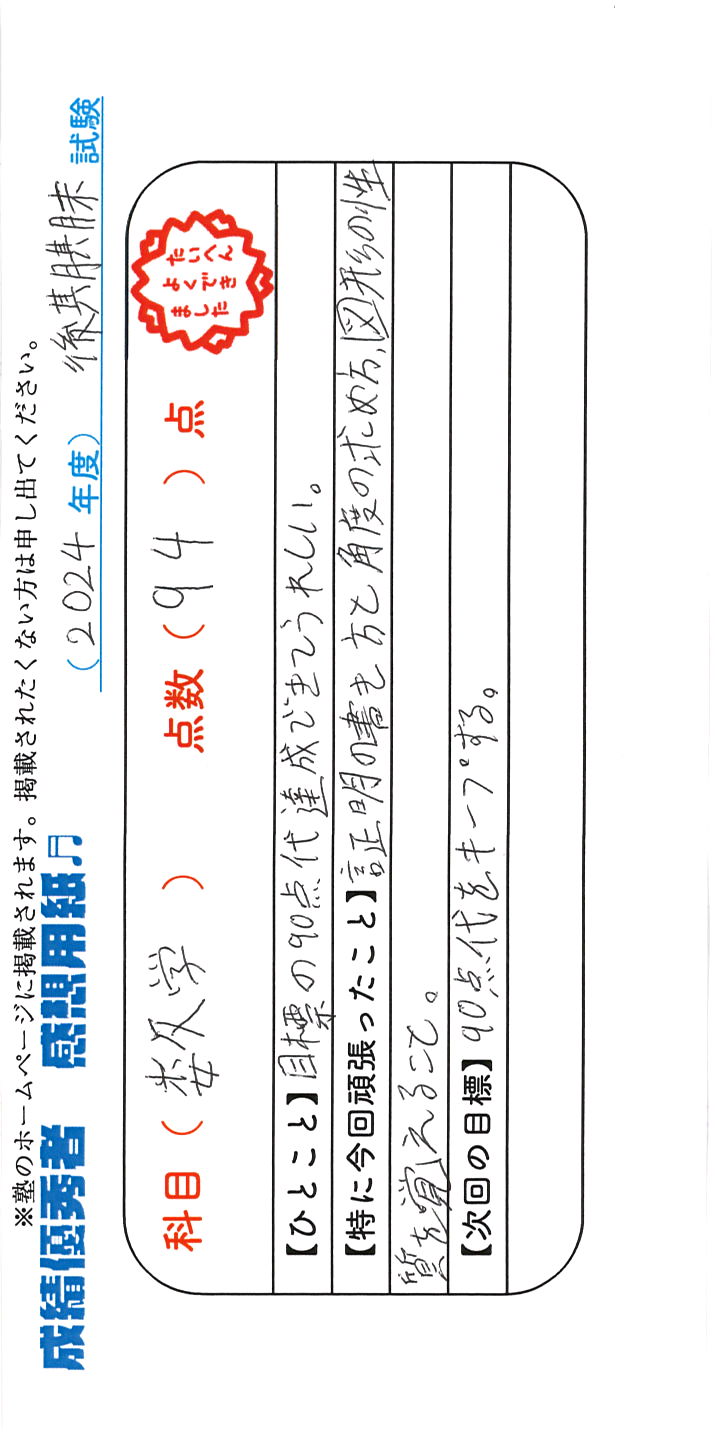 ※塾のホームページに掲載されます。掲載されたくない方は申し出てください。
成績優秀者 感想用紙♫ (2024年度) 後期期末試験
科目(数学) 点数(94)点
たいへん
よくでき
ました
【ひとこと】目標の90点代達成できてうれしい。
【特に今回頑張ったこと】証明の書き方と角度の求め方、図形の性
質を覚えること。
【次回の目標】90点代をキープする。